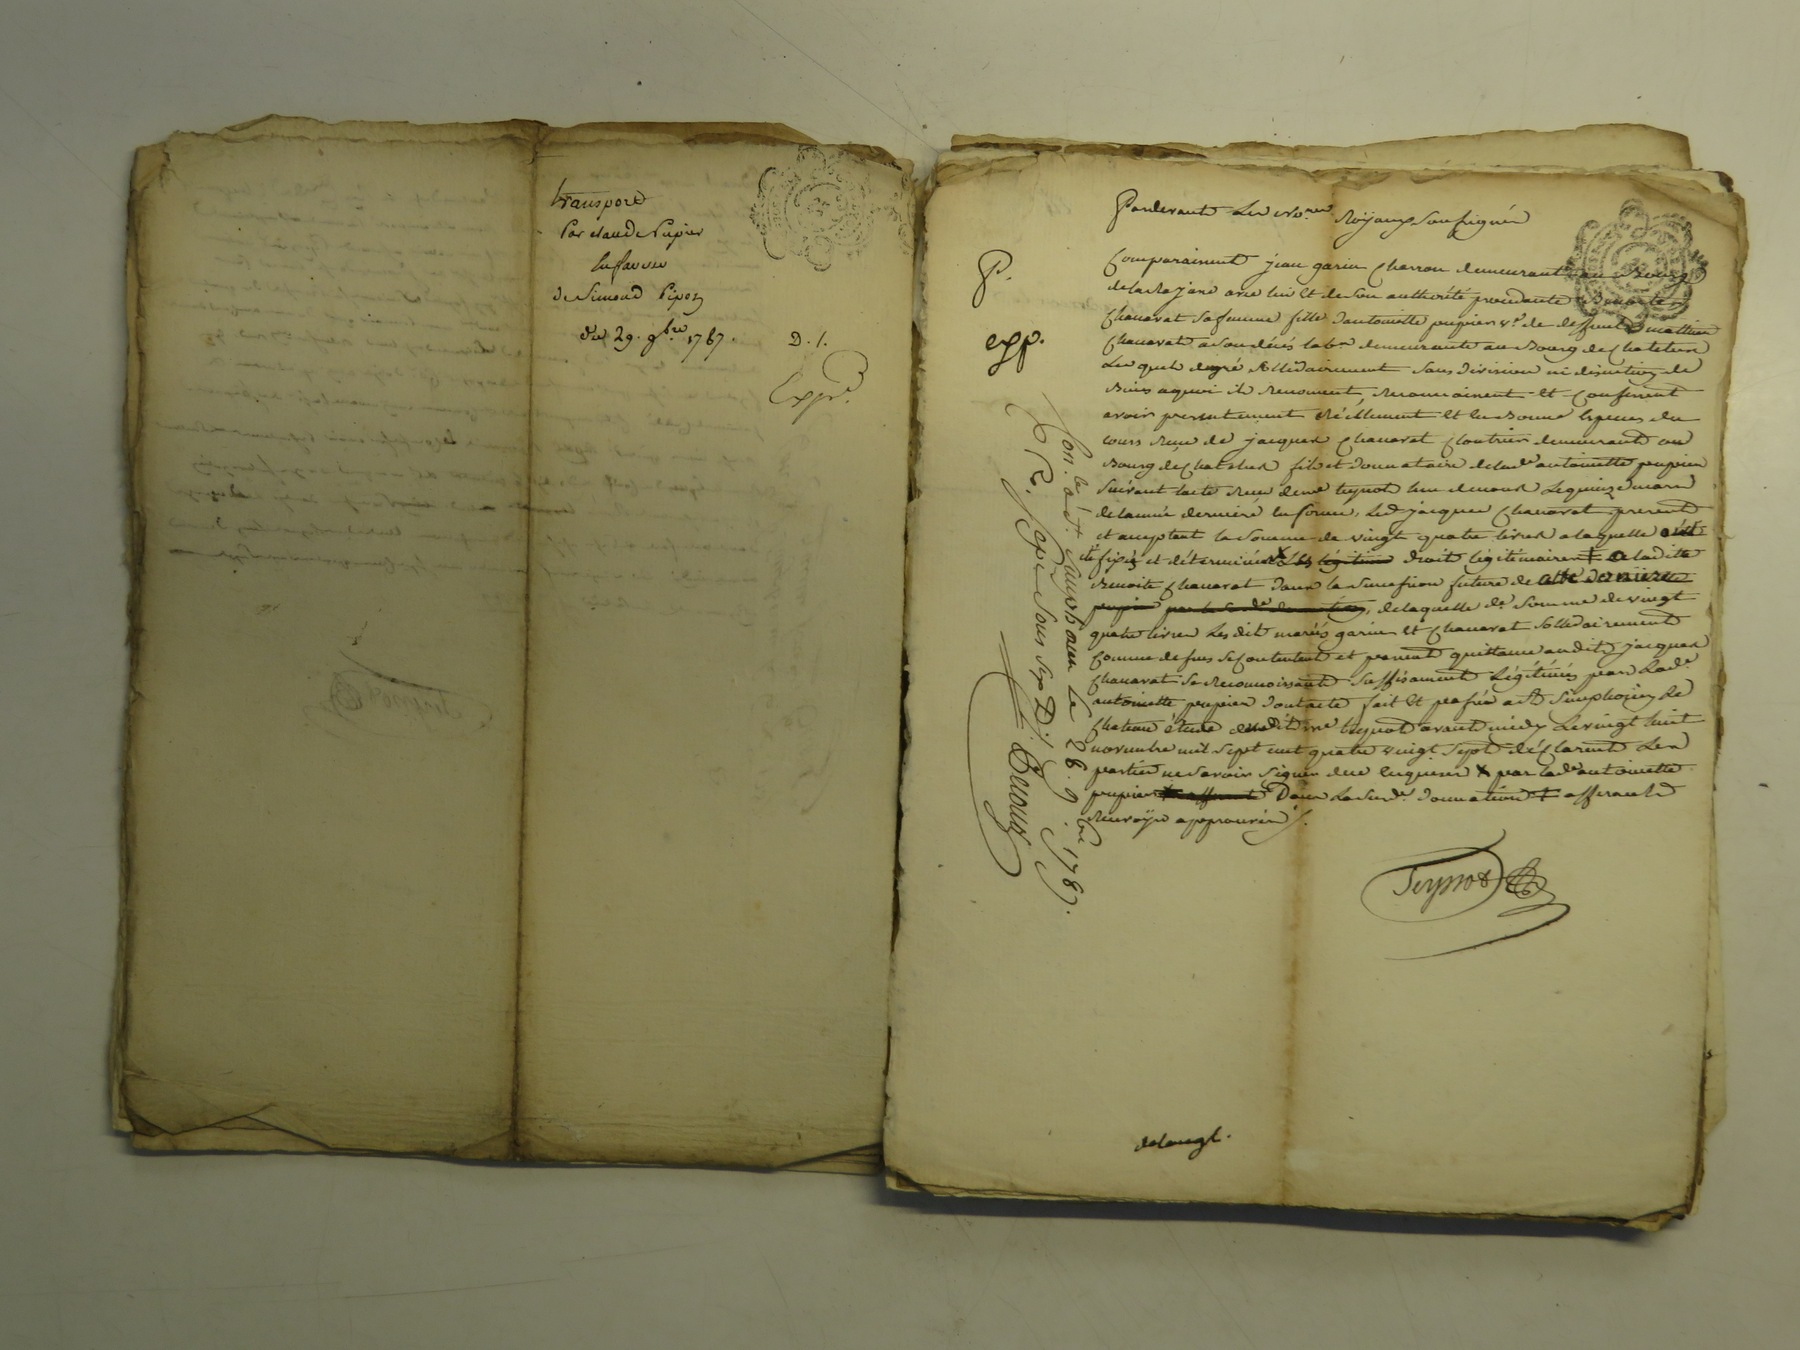 transport
Par claude Pupier
en faveur
de Simond Pipon
du 29. 9bre 1787.
D. 1.
Expé.
Pardevant Les No.res Royaux soussignés
P.
exp.
Comparaissent jean garin charron demeurant au Bourg
de la avec lui et de son authorité procédante Benoite
Chavarat sa femme fille d'antoinette pupier v.e de deffunt mathieu
Chavarat à son décès lab.r demeurante au Bourg de Chatelus
Lesquels degré sollidairement sans division ni discution de
Biens aquoi ils renoncent, reconnoissent et confessent
avoir presentement réellement et en Bonne Espèces du
cours reçu de jacques Chavarat demeurant au
Bourg de Chatelus fils et donnataire de lad.e antoinette pupier
suivant lacte reçu de me teyssot lun de nous Le quinze mars
de lannée derniere en forme, Led. jacques Chavarat present
et acceptant la somme de vingt quatre livres a laquelle a été
été fixés et déterminés Les droits légitimaires de ladite
Benoite Chavarat dans la succession future de cette derniere
de laquelle d.e somme de vingt
quatre livres Lesdit mariés garin et Chavarat sollidairement
comme dessus se contentent et passent quittance audit jacques
Chavarat se reconnoissant suffisament Légitimés par Lad.e
antoinette pupier dont acte fait et passé a St Simphorien Le
Chateau étude dudit me teyssot avant midy Le vingt huit
novembre mil sept cent quatre vingt sept déclarent Les
parties ne savoir signer de ce enquises x par lad.e antoinette
pupier Dans La susd.e donnation ‡ afferants
renvoye approuvés
Teyssot
Con.lé à St Simphorien Le 28. 9bre 1787.
R. sept sous six D.
delaugt.